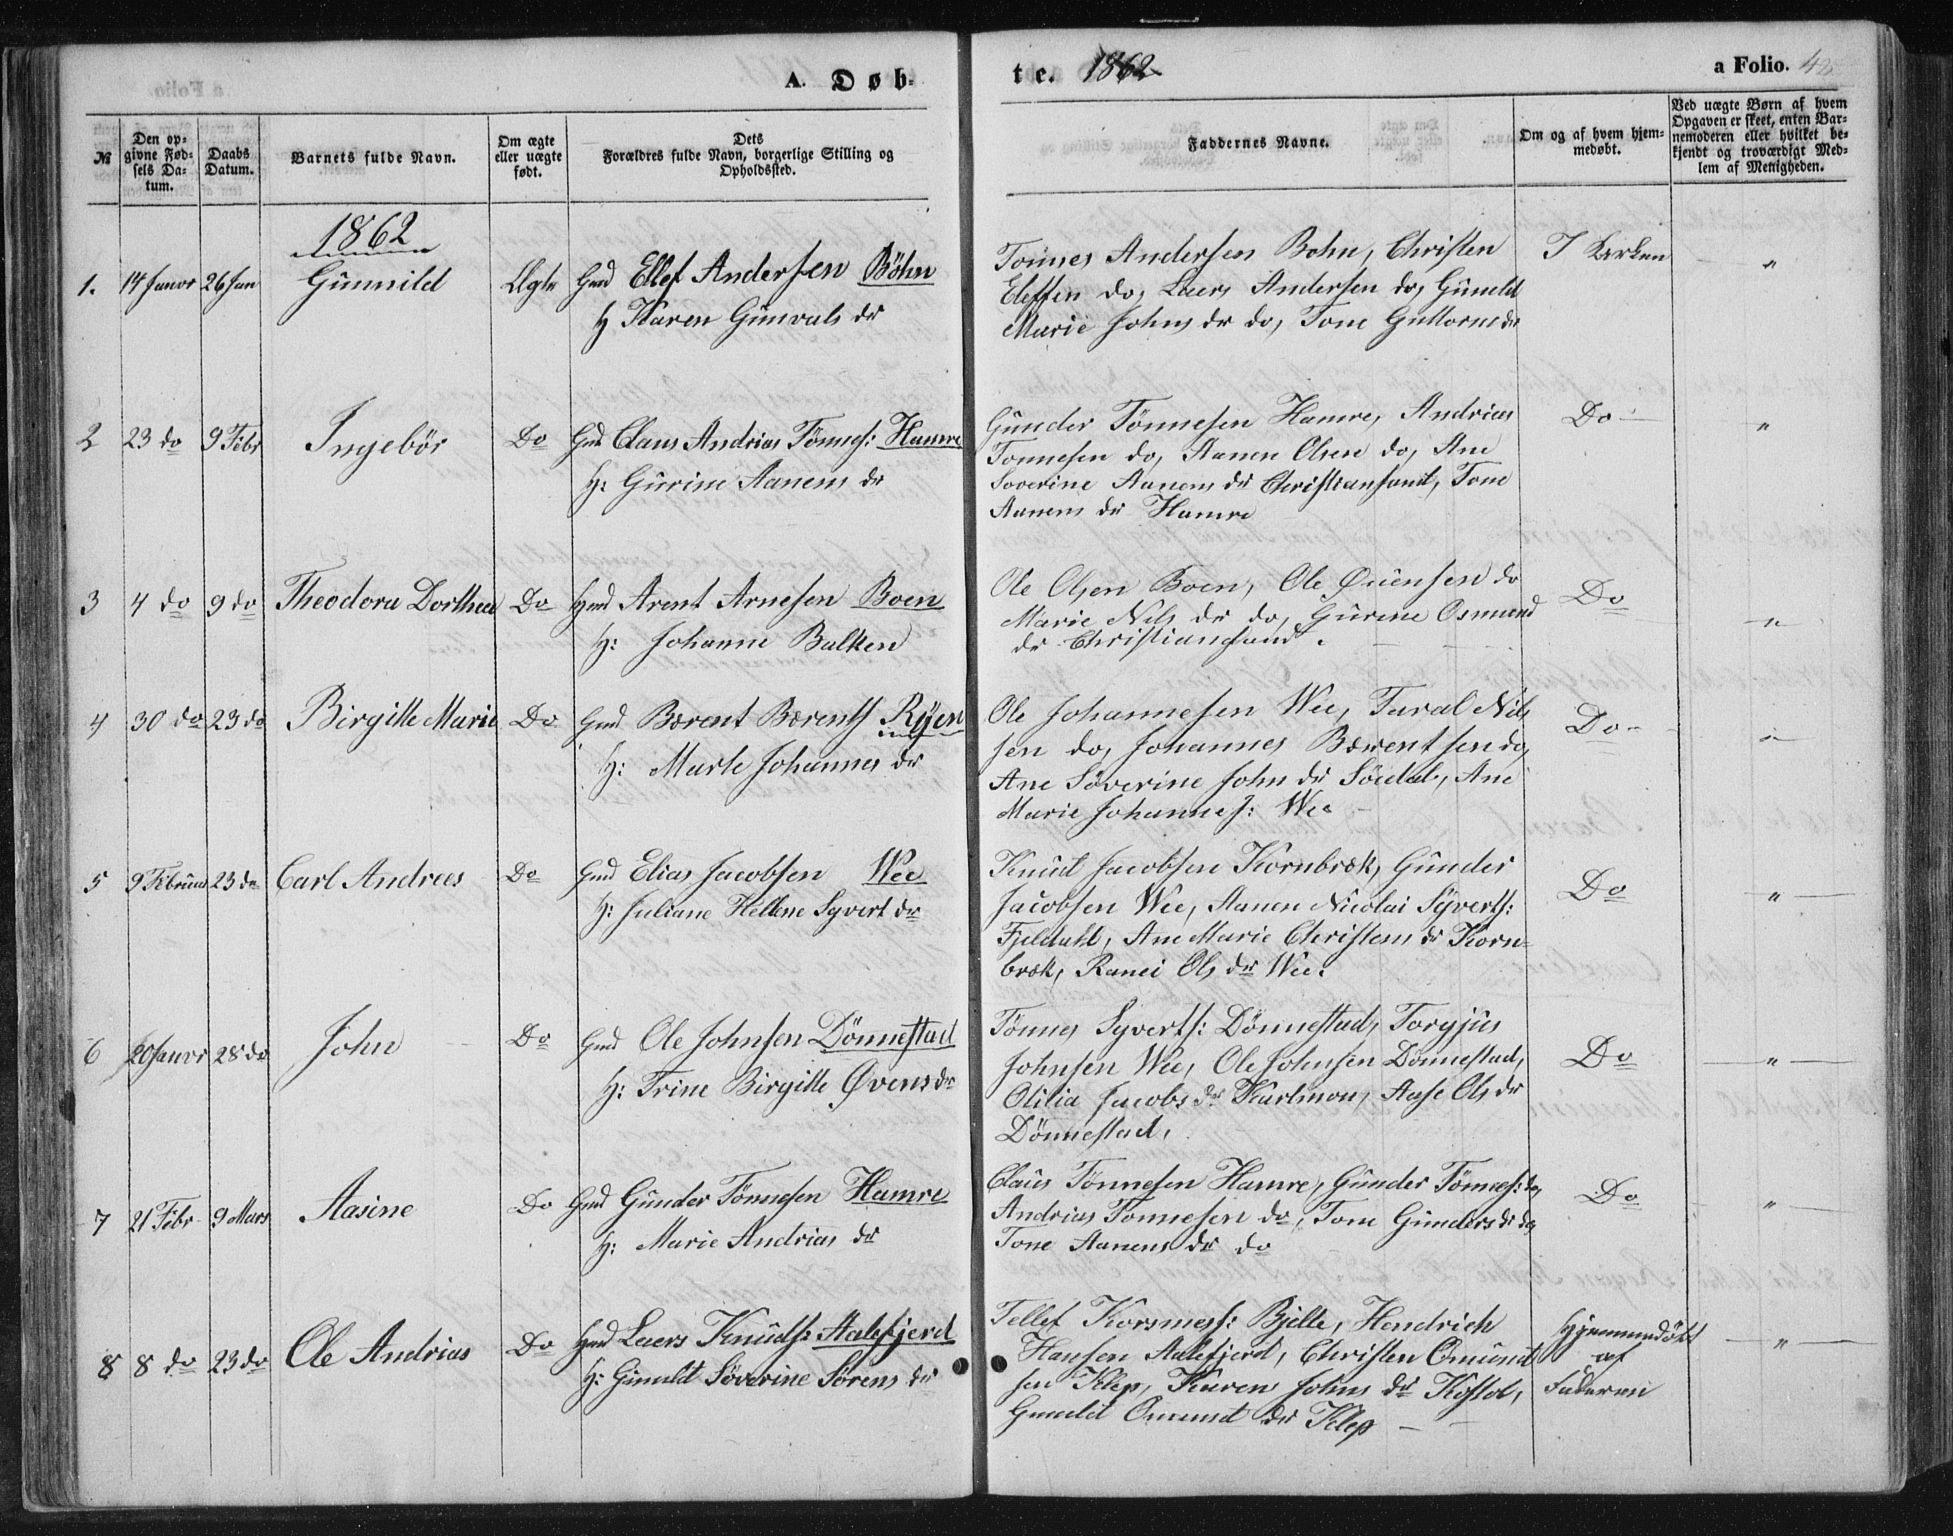 A. Døb-
te. 1862
a Folio. 42
№
Den op-
givne Fød-
sels Da-
tum.
Daabs
Datum.
Barnets fulde Navn.
Om ægte
eller uægte
født.
Dets
Forældres fulde Navn, borgerlige Stilling og
Opholdssted.
Faddernes Navne.
Om og af hvem hjem-
medøbt.
Ved uægte Børn af hvem
Opgaven er skeet, enten Bar-
nemoderen eller hvilket be-
kjendt og troværdigt Med-
lem af Menigheden.
1862
1. 14 Januar 26 Jan Gunnild Ægte Gmd Ellef Andersen Böhn
H Karen Gunvals dr
Tönnes Andersen Bohn, Christen
Eleffsen do, Laers Andersen do, Guneld
Marie Johns dr do, Tone Guttorms dr
I Kerken "
2 23 do 9 Febr Ingebör Do Gmd Claus Andrias Tönness: Hamre
H: Gurine Aanens dr
Gunder Tönnesen Hamre, Andrias
Tönnesen do, Aanen Olsen do, Ane
Soverine Aanens dr Christiansand, Tone
Aanens dr Hamre
Do "
3 4 do 9 do Theodora Dorthea Do Hmd Arent Arnesen Boen
H: Johanne Balken
Ole Olsen Boen, Ole Øuensen do
Marie Nils dr do, Gurine Osmund
dr Christiansand.
Do "
4 30 do 23 do Birgitte Marie Do Gmd Bærent Bærents Ryen
H: Marte Johannes dr
Ole Johannesen Wee, Taral Nils
sen do, Johannes Bærentsen do,
Ane Söverine John dr Södal, Ane
Marie Johannes: Wee
Do "
5 9 Februar 23 do Carl Andrees Do Gmd Elias Jacobsen Wee
H: Juliane Hellene Syvert dr
Knud Jacobsen Kornbrok, Gunder
Jacobsen Wee, Aanen Nicolai Syverts:
Fjeldahl, Ane Marie Christens dr Korn-
brok, Ranei Ols dr Wee.
Do "
6 20 Januar 28 do John Do Gmd Ole Johnsen Dönnestad
H: Trine Birgitte Øvens dr
Tönnes Syverts: Dönnestad, Torgjus
Johnsen Wee, Ole Johnsen Dönnestad,
Otilia Jacobs dr Kartmon, Aase Ols dr
Dönnestad,
Do "
7 21 Febr 9 Mars Aasine Do Gmd Gunder Tönnesen Hamre
H: Marie Andrias dr
Claus Tönnesen Hamre, Gunder Tönnes: do,
Andrias Tönnesen do, Tone Gunders dr do,
Tone Aanens dr do
Do "
8 8 do 23 do Ole Andrias Do Hmd Laers Knuds: Aalefjerd
H: Gunuld Söverine Sörens dr
Tellef Korsmess: Bjelle, Hendrich
Hansen Aalefjerd, Christen Omund
sen Klep, Karen Johns dr Kossol,
Gunuld Omund dr Klep
Hjemmedöbt
af
Faderen "